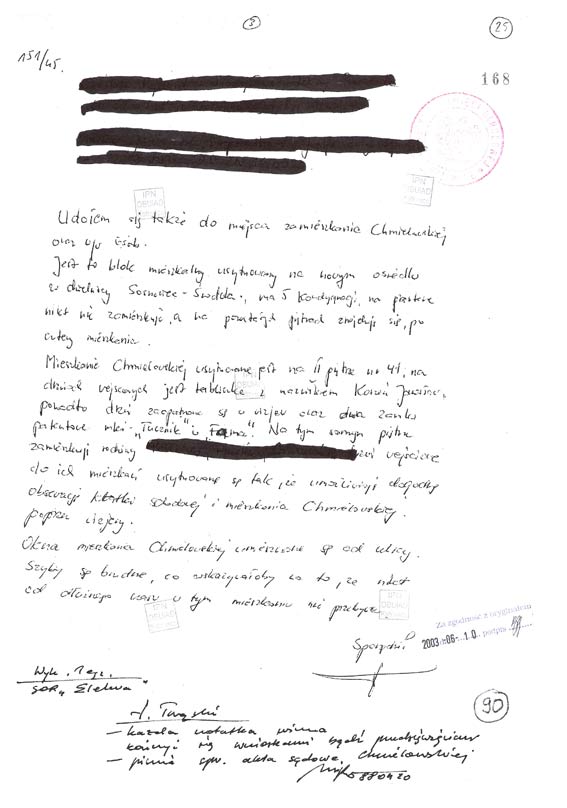 8
25
151/45.
168
IPN
OBUIAD
IPN
OBUIAD
Udałem się także do miejsca zamieszkania Chmielowskiej
oraz w/w osób.
Jest to blok mieszkalny usytuowany na nowym osiedlu
w dzielnicy Sosnowiec-Środula, ma 5 kondygnacji, na parterze
nikt nie zamieszkuje, a na pozostałych piętrach znajdują się po
cztery mieszkania.
Mieszkanie Chmielowskiej usytuowane jest na II piętrze nr 41, na
drzwiach wejściowych jest tabliczka z nazwiskiem
ponadto drzwi zaopatrzone są w wizjer oraz dwa zamki
patentowe marki "Łucznik" i "Fama". Na tym samym piętrze
zamieszkują rodziny drzwi wejściowe
do ich mieszkań usytuowane są tak, że umożliwiają dogodną
obserwację klatki schodowej i mieszkania Chmielowskiej
poprzez wizjery.
Okna mieszkania Chmielowskiej umieszczone są od ulicy.
Szyby są brudne, co wskazywałoby na to, że nikt
od dłuższego czasu w tym mieszkaniu nie przebywa.
IPN
OBUIAD
IPN
OBUIAD
Za zgodność z oryginałem
2003 -06- 1 0. podpis
Sporządził
Wyk. 1 egz.
90
— każda notatka winna
kończyć się wnioskami bądź przedsięwzięciem
— pismo spr. akta sądowe Chmielowskiej
880420